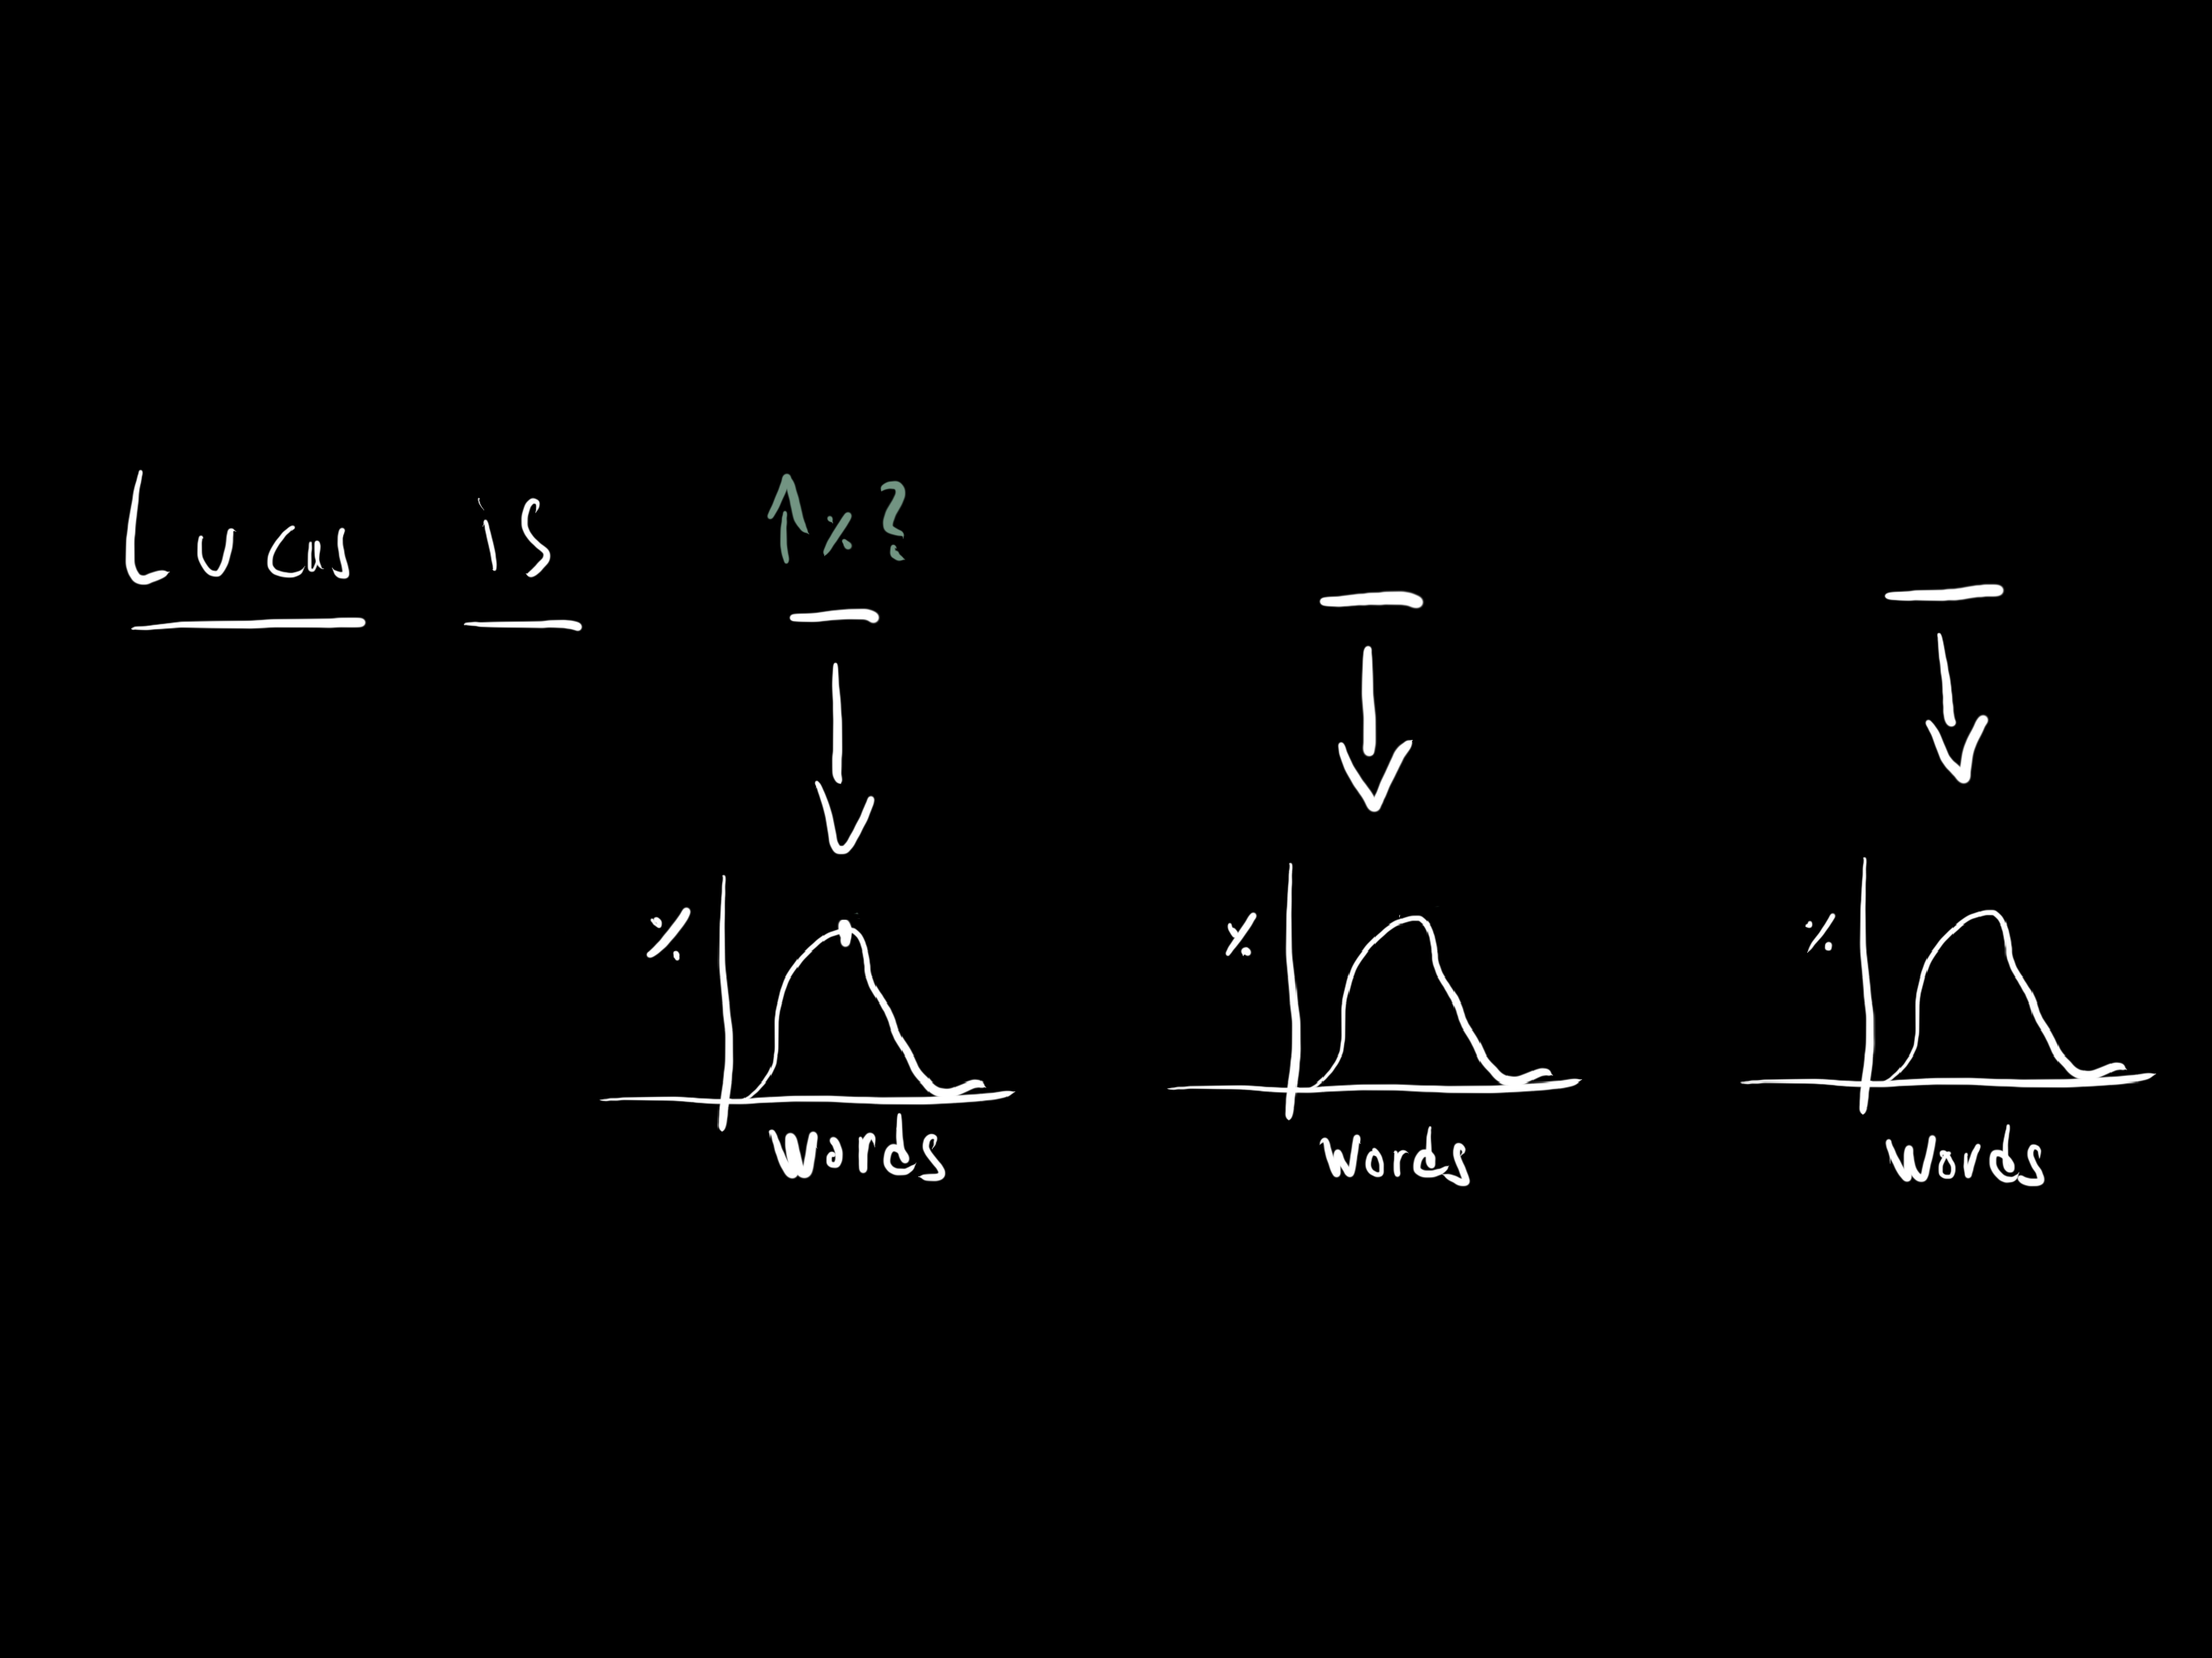 Lucas is ↑%?
% % %
Words Words Words